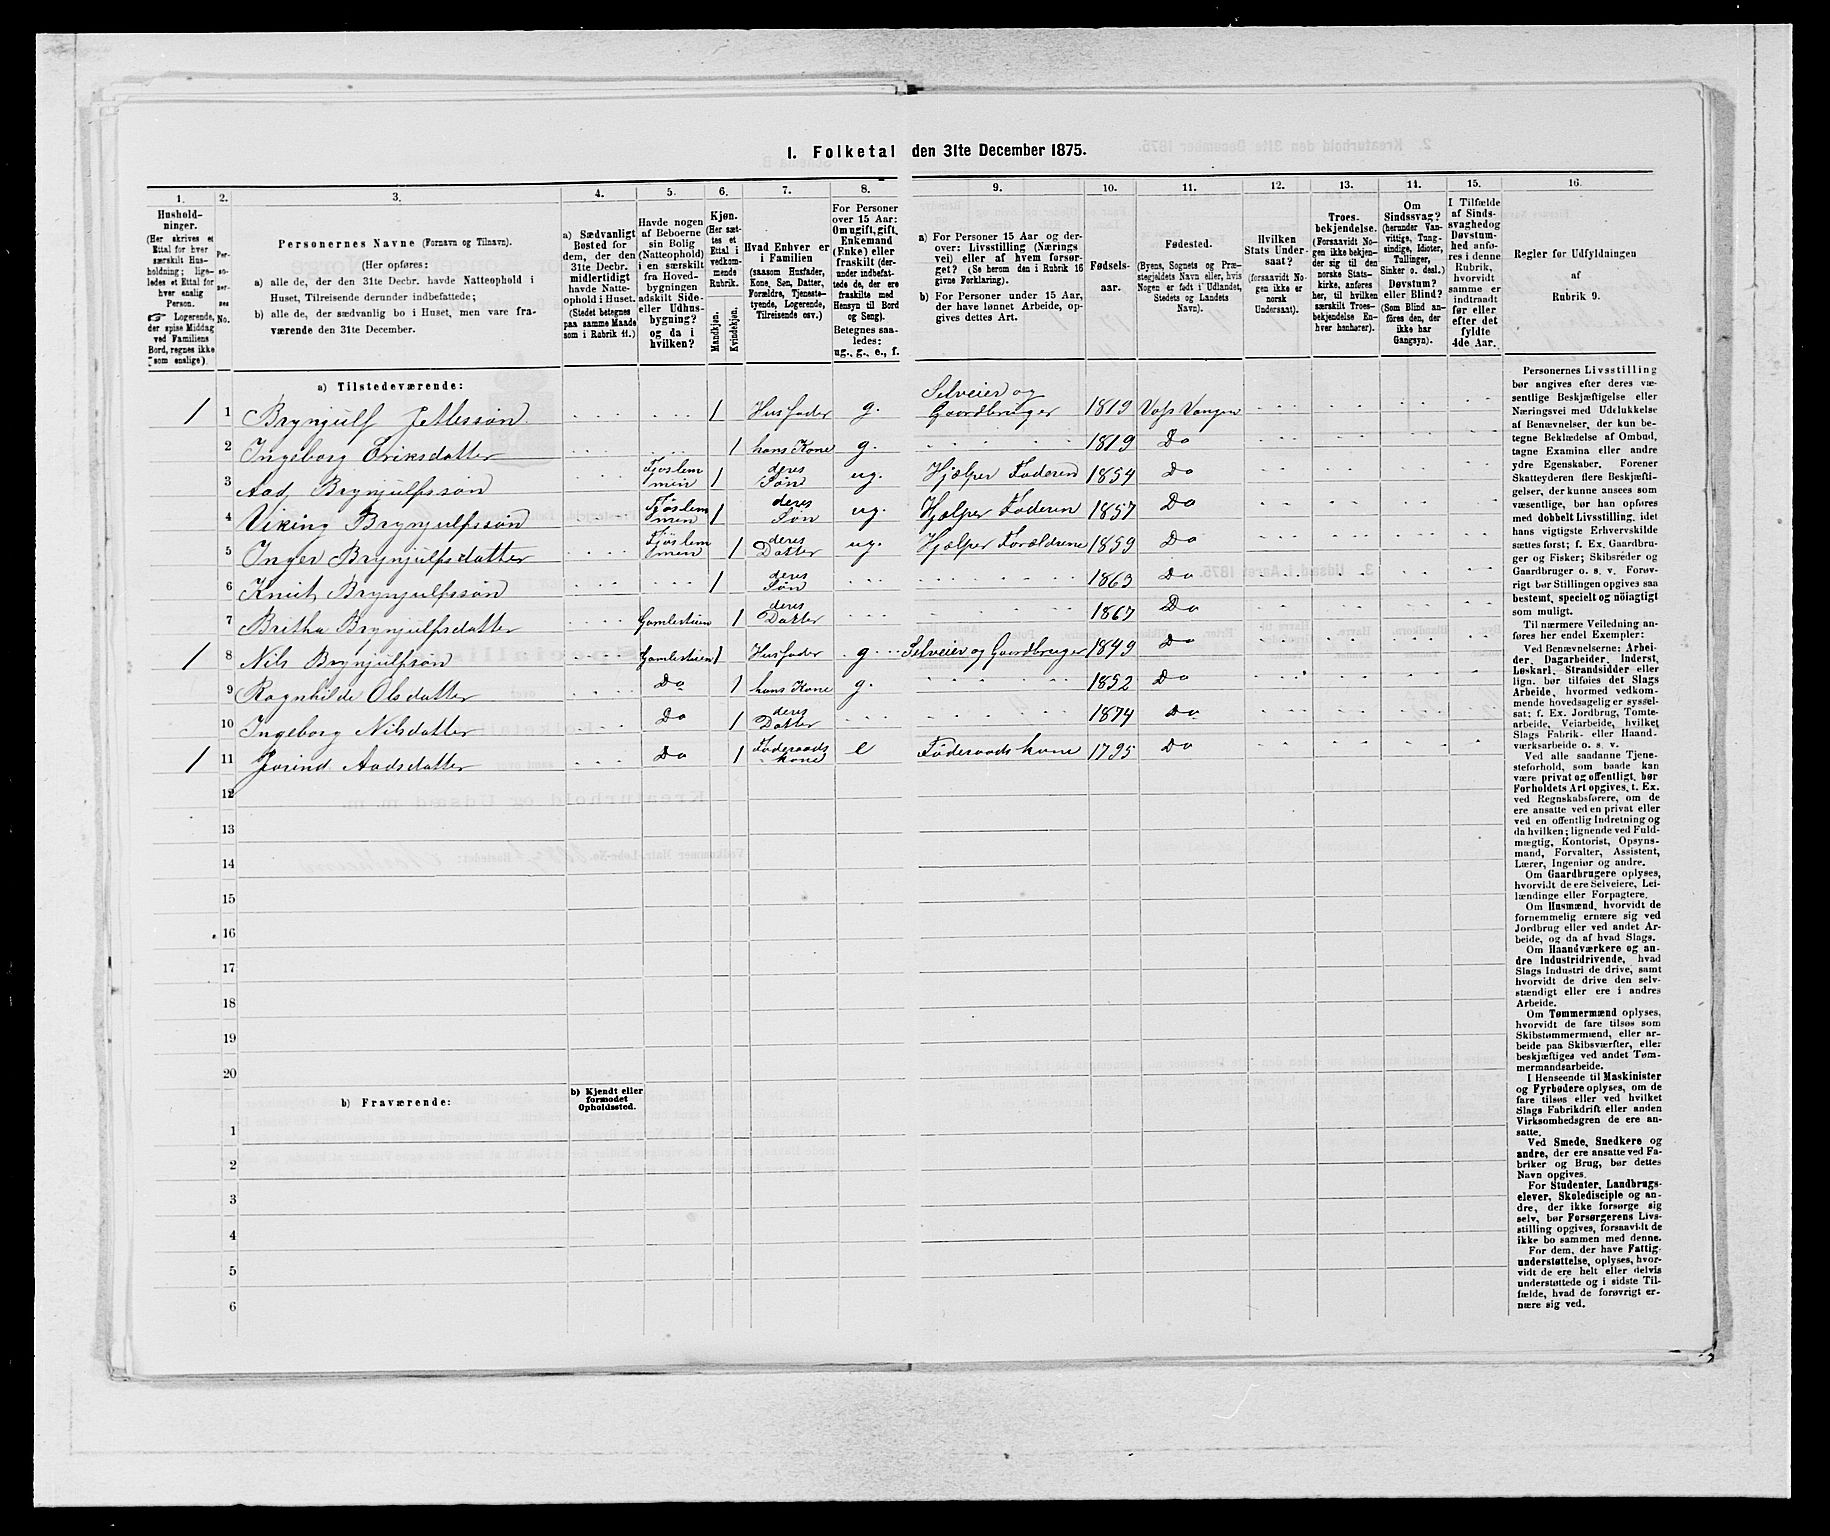 I. Folketal den 31te December 1875.
1. 2. 3. 4. 5. 6. 7. 8. 9. 10. 11. 12. 13. 14. 15. 16.
Hushold-
ninger.
(Her skrives et
Ettal for hver
særskilt Hus-
holdning; lige-
ledes et Ettal for
hver enslig
Person.
☞ Logerende,
der spise Middag
ved Familiens
Bord, regnes ikke
som enslige).
Per-
so-
ner-
nes
No.
Personernes Navne (Fornavn og Tilnavn).
(Her opføres:
a) alle de, der den 31te Decbr. havde Natteophold i
Huset, Tilreisende derunder indbefattede;
b) alle de, der sædvanlig bo i Huset, men vare fra-
værende den 31te December.
a) Sædvanligt
Bosted for
dem, der den
31te Decbr.
midlertidigt
havde Natte-
ophold i Huset.
(Stedet betegnes
paa samme Maade
som i Rubrik 11.)
Havde nogen
af Beboerne
sin Bolig
(Natteophold)
i en særskilt
fra Hoved-
bygningen
adskilt Side-
eller Udhus-
bygning?
og da i
hvilken?
Kjøn.
(Her sæt-
tes et
Ettal i
vedkom-
mende
Rubrik.
Mandkjøn.
Kvindekjøn.
Hvad Enhver er
i Familien
(saasom Husfader,
Kone, Søn, Datter,
Forældre, Tjeneste-
tyende, Logerende,
Tilreisende osv.)
For Personer
over 15 Aar:
Om ugift, gift,
Enkemand
(Enke) eller
fraskilt (der-
under indbefat-
tede de, der ere
fraskilte med
Hensyn til Bord
og Seng).
Betegnes saa-
ledes:
ug., g., e., f.
a) For Personer 15 Aar og der-
over: Livsstilling (Nærings
vei) eller af hvem forsør-
get? (Se herom den i Rubrik 16
givne Forklaring).
b) For Personer under 15 Aar,
der have lønnet Arbeide, op-
gives dettes Art.
Fødsels-
aar.
Fødested.
(Byens, Sognets og Præ-
stegjeldets Navn eller, hvis
Nogen er født i Udlandet,
Stedets og Landets
Navn).
Hvilken
Stats Under-
saat?
(forsaavidt No-
gen ikke er
norsk
Undersaat).
Troes-
bekjendelse.
(Forsaavidt No-
gen ikke bekjen-
der sig til den
norske Stats-
kirke, anføres
her, til hvilken
særskilt Troes-
bekjendelse En-
hver henhører).
Om
Sindssvag?
(herunder Van-
vittige, Tung-
sindige, Idioter,
Tullinger,
Sinker o. desl.)
Døvstum?
eller Blind?
(Som Blind an-
føres den, der
ikke har
Gangsyn).
I Tilfælde
af Sinds-
svaghed og
Døvstum-
hed anfø-
res i denne
Rubrik,
hvorvidt
samme er
indtraadt
før eller
efter det
fyldte
4de Aar.
Regler for Udfyldningen
af
Rubrik 9.
a) Tilstedeværende:
1 1 Brynjulf Jetlessøn 1 Husfader g. Selveier og Gaardbruger 1819 Voss Vangen
2 Ingeborg Eriksdatter 1 hans Kone g. 1819 Do
3 Aad Brynjulfssøn Fjøslemmen 1 deres Søn ug. Hjælper Faderen 1854 Do
4 Viking Brynjulfssøn Fjøslemmen 1 deres Søn ug. Hjælper Faderen 1857 Do
5 Inger Brynjulfsdatter Fjøslemmen 1 deres Datter ug. Hjelper Forældrene 1859 Do
6 Knut Brynjulfssøn 1 deres Søn 1863 Do
7 Britha Brynjulfsdatter Gamlestuen 1 deres Datter 1867 Do
1 8 Nils Brynjulfsøn Gamlestuen 1 Husfader g. Selveier og Gaardbruger 1849 Do
9 Ragnhilde Olsdatter Do 1 hans Kone g. 1852 Do
10 Ingeborg Nilsdatter Do 1 deres Datter 1874 Do
1 11 Jorind Aadsdatter Do 1 Føderaads kone e Føderaads kone 1795 Do
12
13
14
15
16
17
18
19
20
b) Fraværende:
b) Kjendt eller
formodet
Opholdssted.
1
2
3
4
5
6
Personernes Livsstilling
bør angives efter deres væ-
sentlige Beskjæftigelse eller
Næringsvei med Udelukkelse
af Benævnelser, der kun be-
tegne Beklædelse af Ombud,
tagne Examina eller andre
ydre Egenskaber. Forener
Skatteyderen flere Beskjæfti-
gelser, der kunne ansees som
væsentlige, bør han opføres
med dobbelt Livsstilling, idet
hans vigtigste Erhvervskilde
sættes først; f. Ex. Gaardbru-
ger og Fisker; Skibsreder og
Gaardbruger o. s. v. Forøv-
rigt bør Stillingen opgives saa
bestemt, specielt og nöiagtigt
som muligt.
Til nærmere Veiledning an-
føres her endel Exempler:
Ved Benævnelserne: Arbei-
der, Dagarbeider, Inderst,
Løskarl, Strandsidder eller
lign. bør tilføies det Slags
Arbeide, hvormed vedkom-
mende hovedsagelig er syssel-
sat; f. Ex. Jordbrug, Tomte-
arbeide, Veiarbeide, hvilket
Slags Fabrik- eller Haand-
værksarbeide o. s. v.
Ved alle saadanne Tjene-
steforhold, som baade kan
være privat og offentligt, bør
Forholdets Art opgives, t. Ex.
ved Regnskabsførere, om de
ere ansatte ved en privat eller
ved en offentlig Indretning og
da hvilken; lignende ved Fuld-
mægtig, Kontorist, Opsyns-
mand, Forvalter, Assistent,
Lærer, Ingeniør og andre.
Om Gaardbrugere oplyses,
hvorvidt de ere Selveiere, Lei-
lændinge eller Forpagtere.
Om Husmænd, hvorvidt de
fornemmelig ernære sig ved
Jordbrug eller ved andet Ar-
beide, og da af hvad Slags.
Om Haandværkere og an-
dre Industridrivende, hvad
Slags Industri de drive, samt
hvorvidt de drive den selv-
stændigt eller ere i andres
Arbeide.
Om Tømmermænd oplyses,
hvorvidt de fare tilsøs som
Skibstømmermænd, eller ar-
beide paa Skibsværfter, eller
beskjæftiges ved andet Tøm-
mermandsarbeide.
I Henseende til Maskinister
og Fyrbødere oplyses, om de
fare tilsøs eller ved hvilket
Slags Fabrikdrift eller anden
Virksomhedsgren de ere an-
satte.
Ved Smede, Snedkere og
andre, der ere ansatte ved Fa-
briker og Brug, bør dettes
Navn opgives.
For Studenter, Landbrugs-
elever, Skoledisciple og an-
dre, der ikke forsørge sig
selv, bør Forsørgerens Livs-
stilling opgives, forsaavidt de
ikke bo sammen med denne.
For dem, der have Fattig-
understøttelse, oplyses, hvor-
vidt de ere helt eller delvis
understøttede og i sidste Til-
fælde, hvad de forøvrigt er-
nære sig ved.